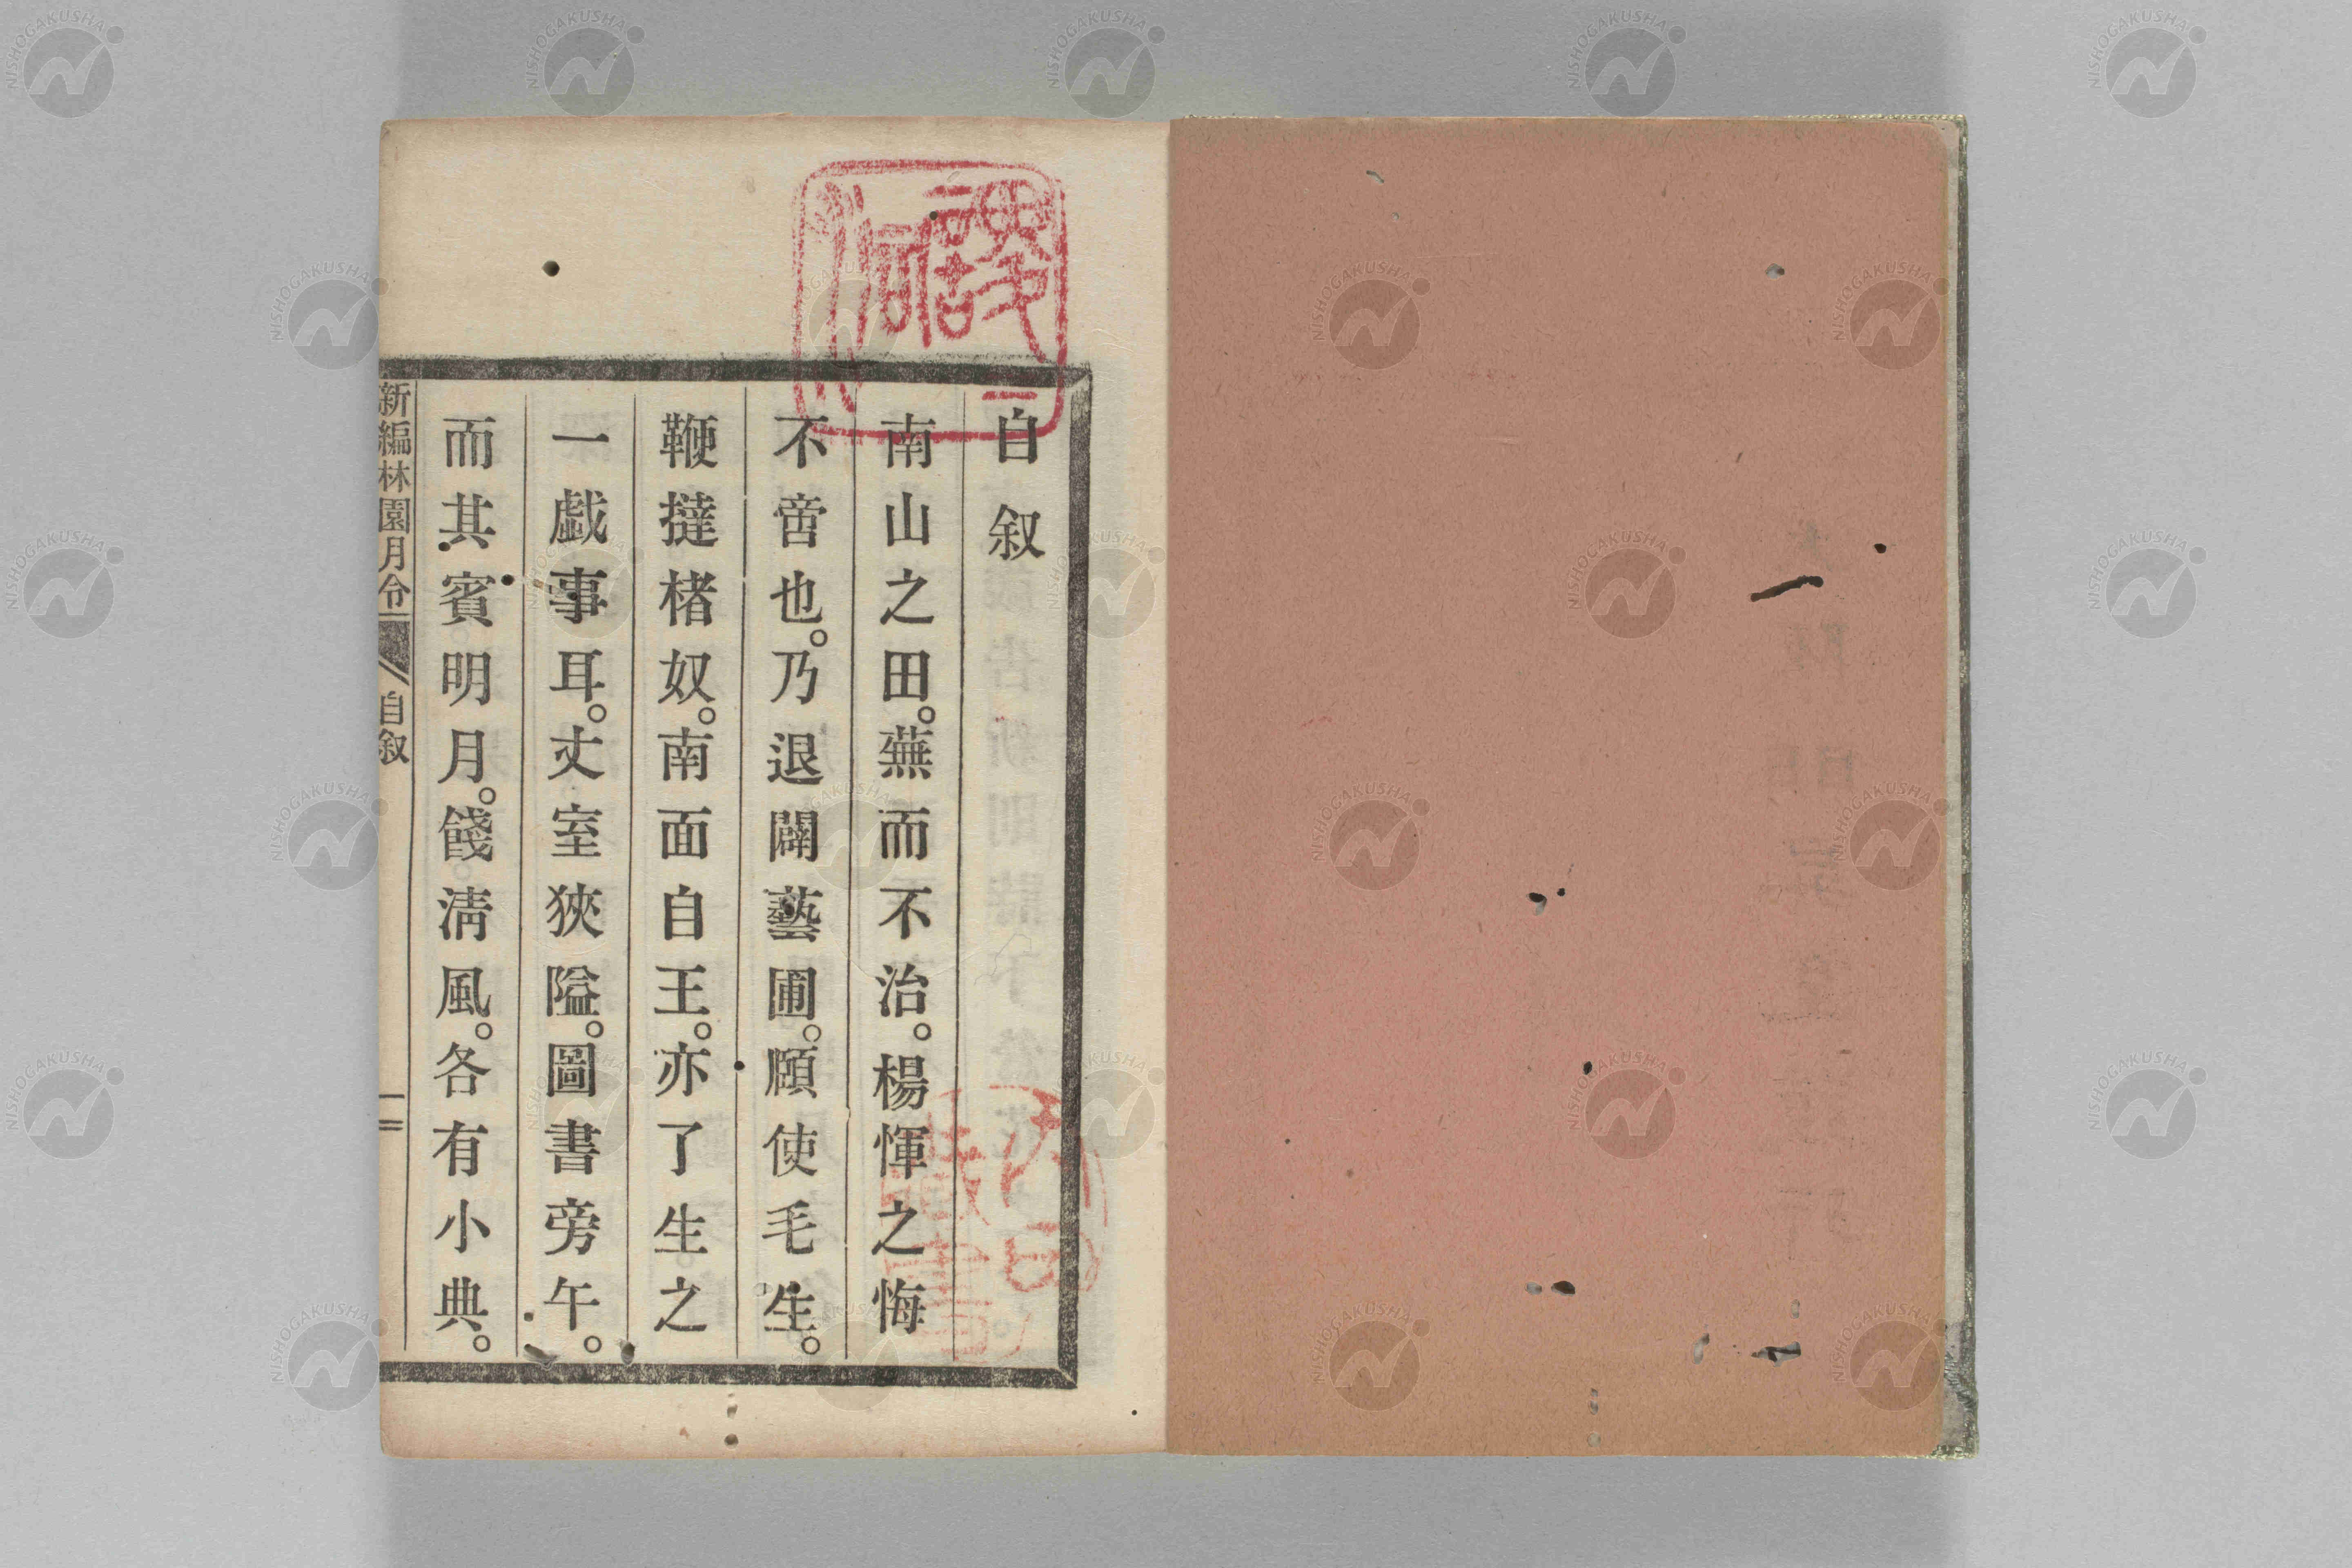 自叙
南山之田。蕪而不治。楊惲之悔
不啻也。乃退闢藝圃。頤使毛生。
鞭撻楮奴。南面自王。亦了生之
一戯事耳。丈室狹隘。圖書旁午。
而其賓明月。餞淸風。各有小典。
新編林園月令
自叙
一
NISHOGAKUSHA